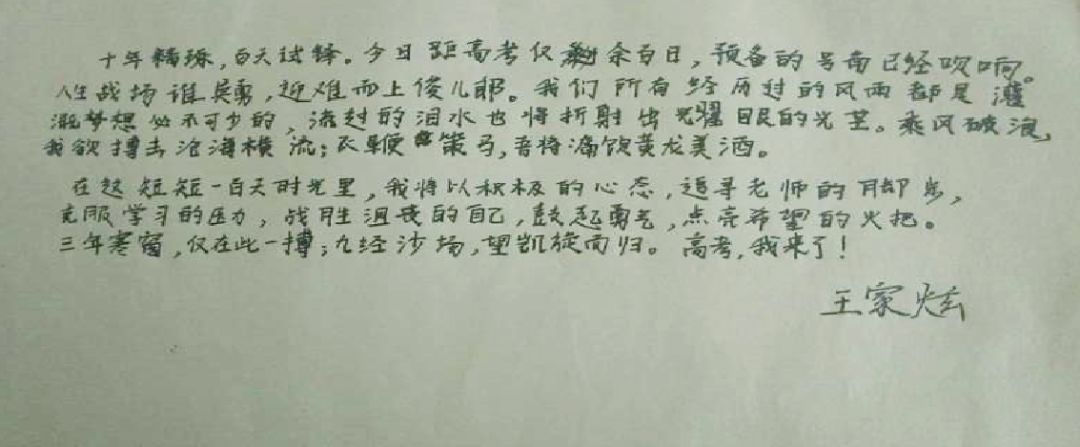 十年精琢，百天试锋。今日距高考仅剩余百日，预备的号角已经吹响。
人生战场谁英勇，迎难而上俊儿郎。我们所有经历过的风雨都是灌
溉梦想必不可少的，流过的泪水也将折射出光耀眼的光芒。乘风破浪，
我欲搏击沧海横流；长鞭策马，吾将痛饮黄龙美酒。
在这短短一百天时光里，我将以积极的心态，追寻老师的脚步，
克服学习的压力，战胜沮丧的自己，鼓起勇气，点亮希望的火把。
三年寒窗，仅在此一搏；九经沙场，望凯旋而归。高考，我来了！
王家炫